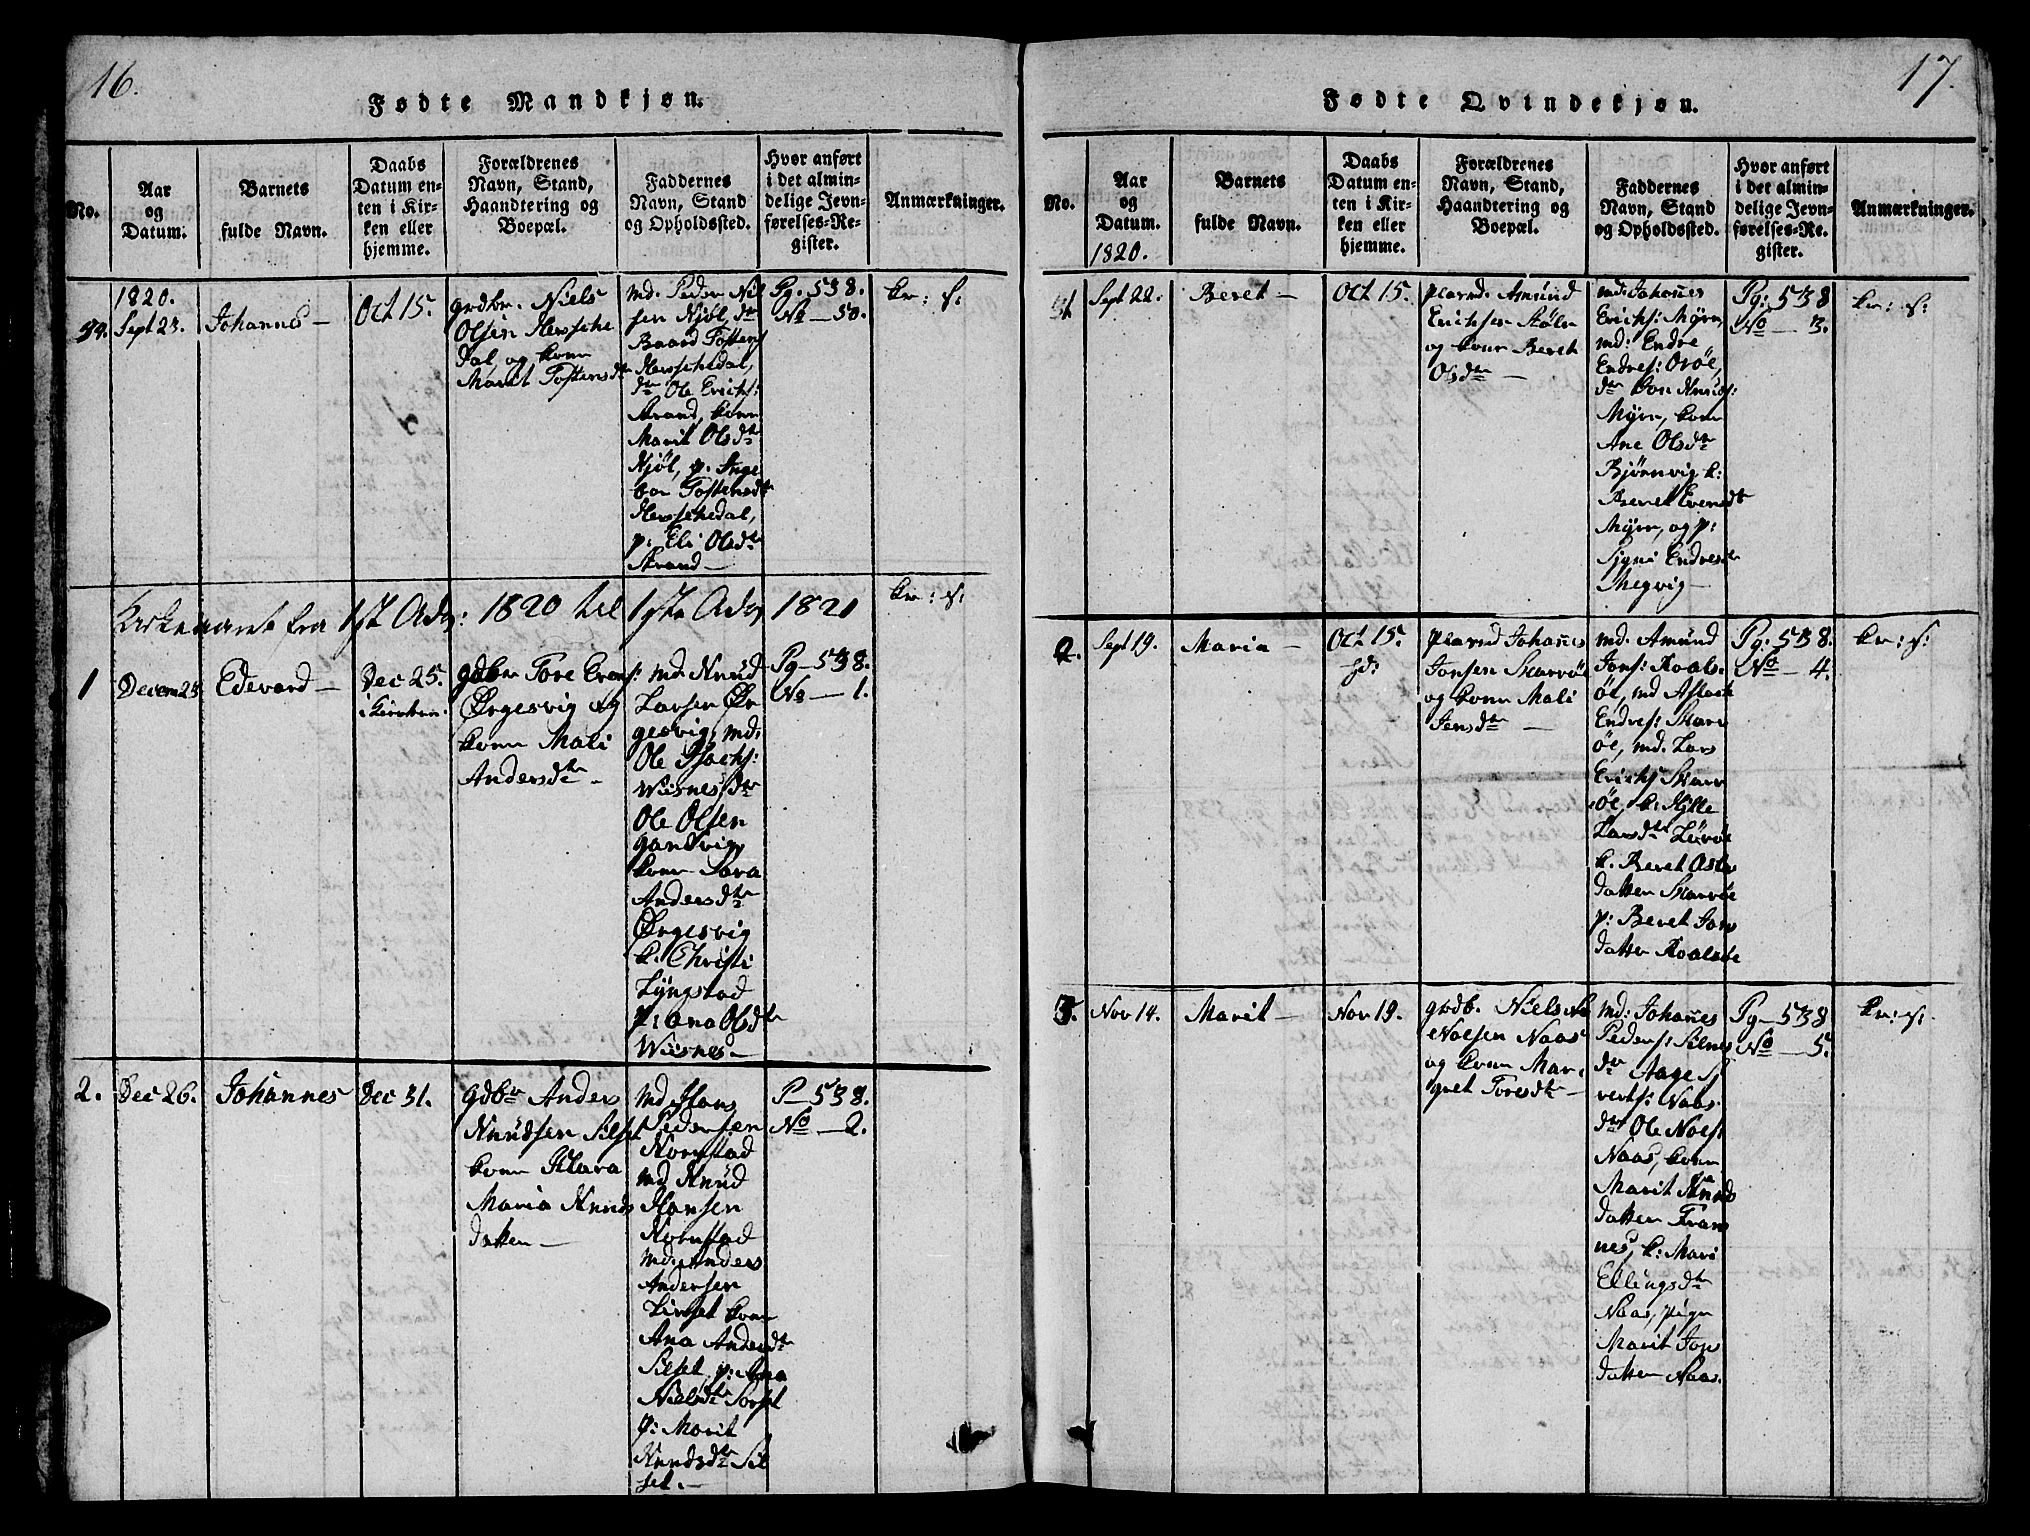 16.
Fødte Mandkjøn.
No.
Aar
og
Datum.
Barnets
fulde Navn.
Daabs
Datum en-
ten i Kir-
ken eller
hjemme.
Forældrenes
Navn, Stand,
Haandtering og
Boepæl.
Faddernes
Navn, Stand
og Opholdssted.
Hvor anført
i det almin-
delige Jevn-
førelses-Re-
gister.
Anmærkninger.
1820.
Sept 23.
Johannes —
Oct 15.
grdbr. Niels
Olsen
dal, og kone
Marit Tostensdtr
md. Peder Niel
sen Njøl, dtr
Baard Tostens
dtr Ole Erichs:
Strand, kone
Marit Olsdtr
Njøl, p. Inge
bor Tostensdtr
p: Eli Olsdtr
Strand —
Pg. 538.
No — 50.
kr: s:
Kirkeaaret fra 1st Adv: 1820 til 1ste Adv 1821
kr: s:
1
Decem 23
Edevard —
Dec 25.
i Kirken.
gdbr Tore Evens:
Ørgesvig og
kone Mali
Andersdtr —
md. Knud
Larsen Ør
gesvig, md.
Ole Isachs:
Wisnes, dtr
Ole Olsen
Gandvig
kone Sara
Andersdtr
Ørgesvig
k. Christi
Lyngstad
p: Ana Olsdtr
Wisnes. —
Pg — 538.
No — 1.
2.
Dec 26.
Johannes
Dec 31.
gdbr Anders
Knudsen Silset
kone Klara
Maria Knuds
datter —
md. Hans
Pedersen
Kornstad
md Knud
Hansen
Kornstad
md. Anders
Andersen
Lirset kone
Ana Andersdtr
Silset, p: Ana
Nielsdtr Torset
p: Marit
Knudsdtr Sil
set. —
P — 538.
No — 2.
17.
Fødte Qvindekjøn.
No.
Aar
og
Datum.
1820.
Barnets
fulde Navn.
Daabs
Datum en-
ten i Kir-
ken eller
hjemme.
Forældrenes
Navn, Stand,
Haandtering og
Boepæl.
Faddernes
Navn, Stand
og Opholdssted.
Hvor anført
i det almin-
delige Jevn-
førelses-Re-
gister.
Anmærkninger.
Sept 22.
Beret —
Oct 15.
Amund
Erichsen
og kone Beret
Olsdtr —
md: Johanes
Erichs: Myrn,
md: Endre
Endres: Orøe,
dtr Jon Knuds:
Myrn, kone
Ane Olsdtr
Bjørnvig k:
Beret Evensdtr
Myrn, og p:
Signi Endresdtr
Megvig —
Pg: 538
No — 3.
kr: s:
2.
Sept 19.
Maria —
Oct 15.
hd:
Johanes
Jonsen Skarrøe
og kone Mali
Jensdtr —
md. Amund
Jons: Koals
øe, md Aslach
Endres: Skarr
øe, md. Lars
Erichs: Skarr
øe, k: Kitte
Larsdtr
k. Beret Aslax
datter Skarrøe
p: Beret Jons
datter Koalsøe
Pg: 538.
No — 4.
kr: s:
3.
Nov 14.
Marit —
Nov 19.
grdb. Niels
Nolsen Naas
og kone Mar
gret Toresdtr —
md: Johanes
Peders: Silnes
dtr Aage Si
verts: Naas
dtr Ole Nols:
Naas, kone
Marit Knuds
datter Tran
nes, k: Mari
Ellingsdtr
Naas, pige
Marit Jons
datter Naas.
Pg — 538
No — 5.
kr: s: